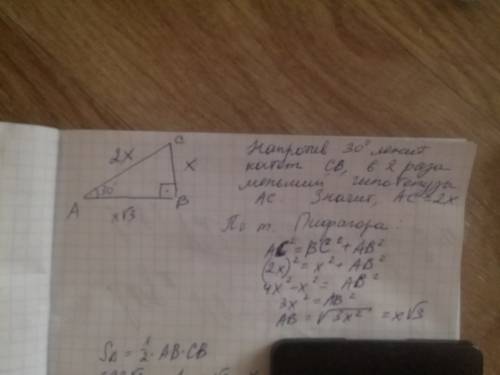 C
2x
x
30°
A
B
x√3
Напротив 30° лежит
катет CB, в 2 раза
меньший гипотенузы
AC Значит, AC=2x
По т. Пифагора:
AC² = BC² + AB²
(2x)² = x² + AB²
4x² - x² = AB²
3x² = AB²
AB = √3x² = x√3
S∆ = 1/2 · AB · CB